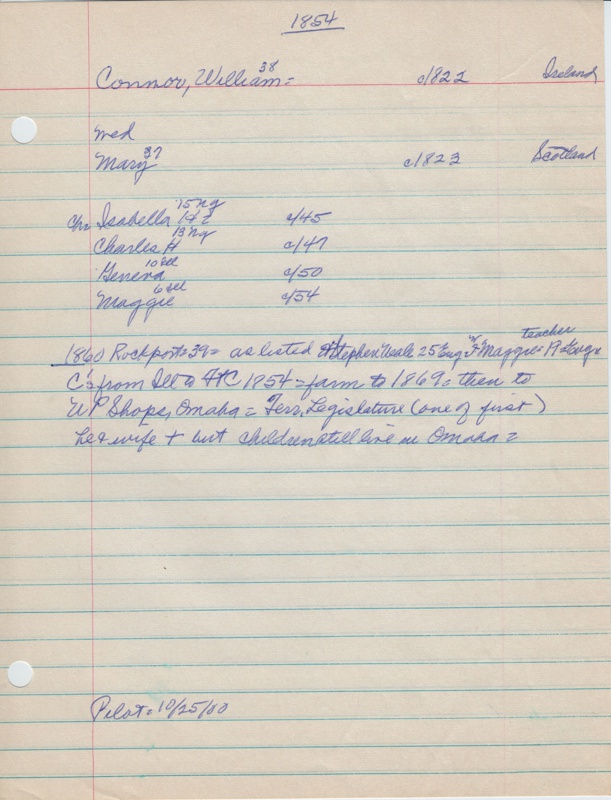 1854
Connor, William 38 = c/1822 Ireland
wed
Mary 37 c/1823 Scotland
Ch= Isabella 15 Ny c/45
Charles H 13 Ny c/47
Genera 10 Ill c/50
Maggie 6 Ill c/54
1860 Rockport = 39 = as listed + Stephen Neale 25 Eng + Maggie = 19 = Eng teacher
C's from Ill to HC 1854 = farm to 1869 = then to
UP Shops, Omaha = Terr. Legislature (one of first)
he & wife + but children still live in Omaha =
Pilot = 10/25/00